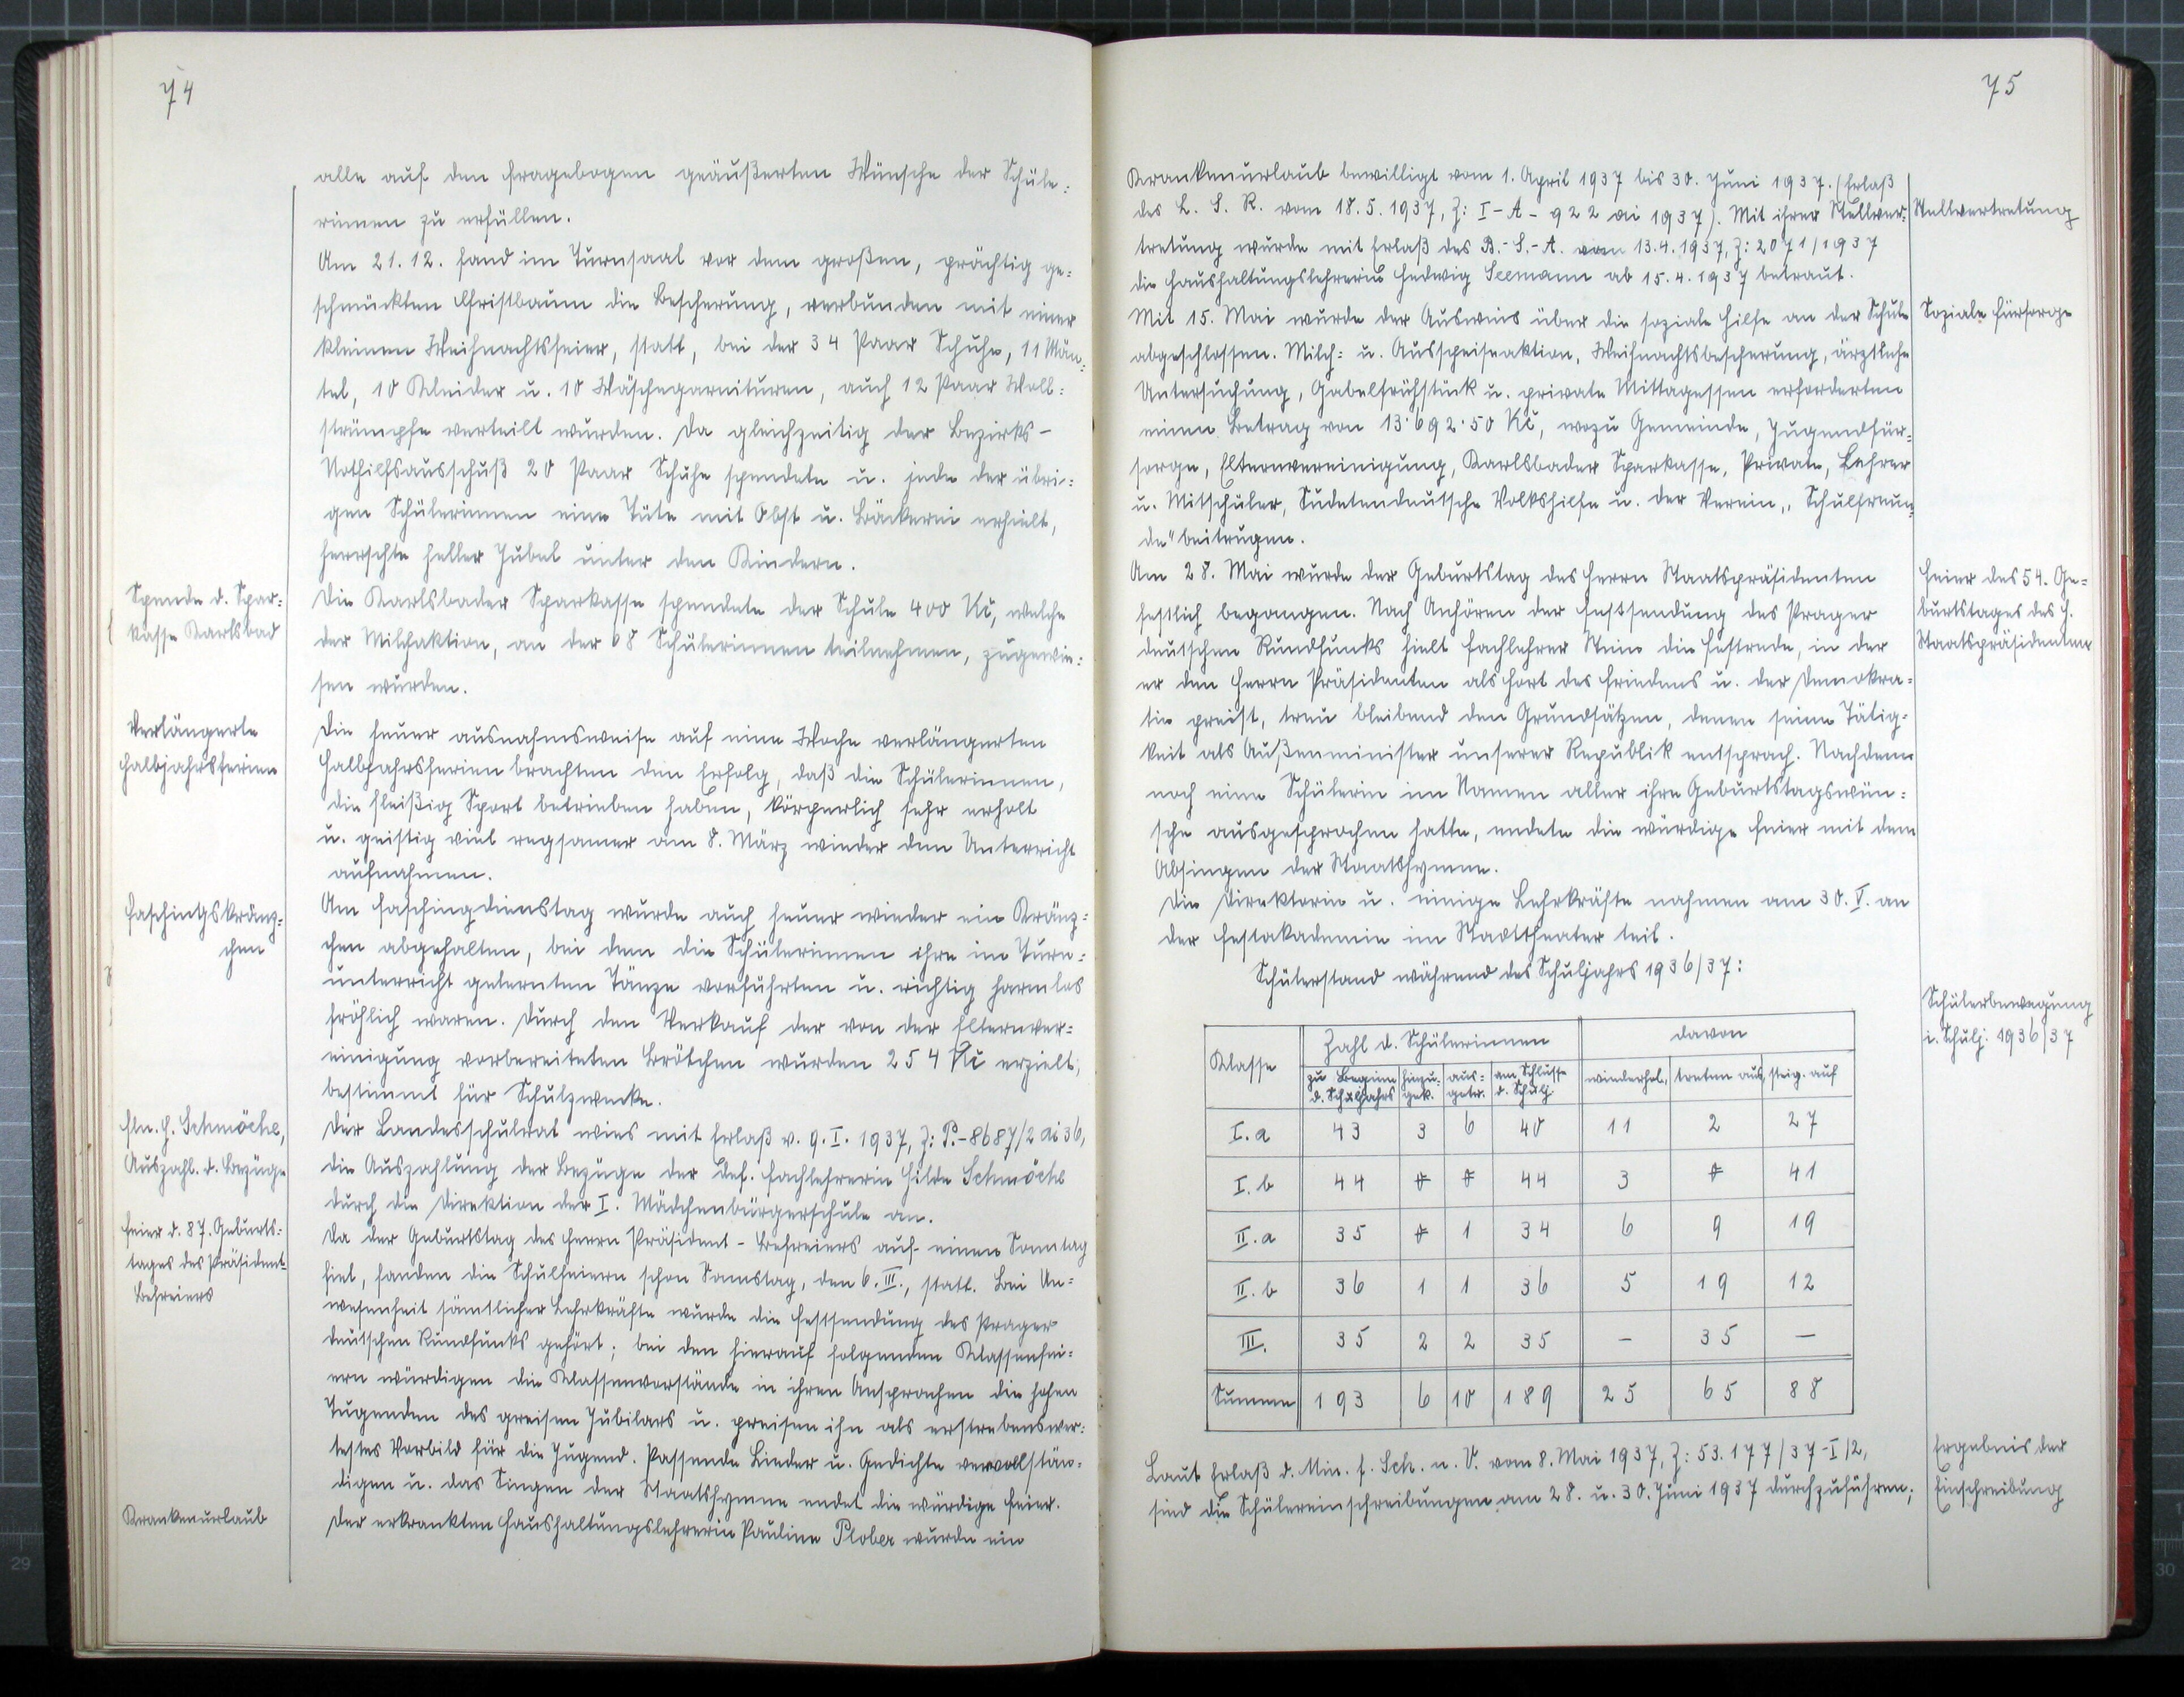 74
alle auf den Fragebogen geäußerten Wünsche der Schüle=
rinnen zu erfüllen.
Am 21.12. fand im Turnsaal vor dem großen, prächtig ge=
schmückten Christbaum die Bescherung, verbunden mit einer
kleinen Weihnachtsfeier, statt, bei der 34 Paar Schuhe, 11 Män=
tel, 10 Kleider u. 10 Wäschegarnituren, auch 12 Paar Woll=
strümpfe verteilt wurden. Da gleichzeitig der Bezirks-
Nothilfsausschuß 20 Paar Schuhe spendete u. jede der übri=
gen Schülerinnen eine Tüte mit Obst u. Bäckerei erhielt,
herrschte heller Jubel unter den Kindern.
Spende d. Spar=
kasse Karlsbad
Die Karlsbader Sparkasse spendete der Schule 400 Kč, welche
der Milchaktion, an der 68 Schülerinnen teilnehmen, zugewie=
sen wurden.
Verlängerte
Halbjahrsferien
Die heuer ausnahmsweise auf eine Woche verlängerten
Halbjahrsferien brachten den Erfolg, daß die Schülerinnen,
die fleißig Sport betrieben haben, körperlich sehr erholt
u. geistig viel regsamer am 8. März wieder den Unterricht
aufnahmen.
Faschingskränz=
chen
Am Faschingdienstag wurde auch heuer wieder ein Kränz=
chen abgehalten, bei dem die Schülerinnen ihre im Turn=
unterricht gelernten Tänze vorführten u. richtig harmlos
fröhlich waren. Durch den Verkauf der von der Elternver=
einigung vorbereiteten Brötchen wurden 254 Kč erzielt,
bestimmt für Schulzwecke.
Fln. H. Schmöche,
Auszahl. d. Bezüge
Der Landesschulrat wies mit Erlaß v. 9.I.1937, Z: P.-8687/2 ai 36,
die Auszahlung der Bezüge der def. Fachlehrerin Hilde Schmöche
durch die Direktion der I. Mädchenbürgerschule an.
Feier d. 87. Geburts=
tages des Präsident-
Befreiers
Da der Geburtstag des Herrn Präsident-Befreiers auf einen Sonntag
fiel, fanden die Schulfeiern schon Samstag, den 6.III., statt. Bei An=
wesenheit sämtlicher Lehrkräfte wurde die Festsendung des Prager
deutschen Rundfunks gehört; bei den hierauf folgenden Klassenfei=
ern würdigen die Klassenvorstände in ihren Ansprachen die hohen
Tugenden des greisen Jubilars u. preisen ihn als erstrebenswer=
testes Vorbild für die Jugend. Passende Lieder u. Gedichte vervollstän=
digen u. das Singen der Staatshymne endet die würdige Feier.
Krankenurlaub
Der erkrankten Haushaltungslehrerin Pauline Plober wurde ein
75
Krankenurlaub bewilligt vom 1. April 1937 bis 30. Juni 1937. (Erlaß
des L. S. R. vom 18.5.1937, Z: I-A-922 ai 1937). Mit ihrer Stellver=
Stellvertretung
tretung wurde mit Erlaß des B.-S.-A. vom 13.4.1937, Z: 2071/1937
die Haushaltungslehrerin Hedwig Seemann ab 15.4.1937 betraut.
Mit 15. Mai wurde der Ausweis über die soziale Hilfe an der Schule
Soziale Fürsorge
abgeschlossen. Milch= u. Ausspeiseaktion, Weihnachtsbescherung, ärztliche
Untersuchung, Gabelfrühstück u. private Mittagessen erforderten
einen Betrag von 13·692·50 Kč, wozu Gemeinde, Jugendfür=
sorge, Elternvereinigung, Karlsbader Sparkasse, Private, Lehrer
u. Mitschüler, Sudetendeutsche Volkshilfe u. der Verein „Schulfreun=
de" beitrugen.
Am 28. Mai wurde der Geburtstag des Herrn Staatspräsidenten
Feier des 54. Ge=
burtstages des H.
Staatspräsidenten
festlich begangen. Nach Anhören der Festsendung des Prager
deutschen Rundfunks hielt Fachlehrer Stein die Festrede, in der
er den Herrn Präsidenten als Hort des Friedens u. der Demokra=
tie preist, treu bleibend den Grundsätzen, denen seine Tätig=
keit als Außenminister unserer Republik entsprach. Nachdem
noch eine Schülerin im Namen aller ihre Geburtstagswün=
sche ausgesprochen hatte, endete die würdige Feier mit dem
Absingen der Staatshymne.
Die Direktorin u. einige Lehrkräfte nahmen am 30.V. an
der Festakademie im Stadttheater teil.
Schülerstand während des Schuljahrs 1936/37:
Schülerbewegung
i. Schulj. 1936/37
Klasse Zahl d. Schülerinnen davon
zu Beginn d. Schuljahrs hinzu-gek. aus-getr. am Schlusse d. Schulj. wiederhol. treten aus, steig. auf
I.a 43 3 6 40 11 2 27
I.b 44 0 0 44 3 0 41
II.a 35 0 1 34 6 9 19
II.b 36 1 1 36 5 19 12
III. 35 2 2 35 – 35 –
Summe 193 6 10 189 25 65 88
Laut Erlaß d. Min. f. Sch. u. V. vom 8. Mai 1937, Z: 53.177/37-I/2,
sind die Schülereinschreibungen am 28. u. 30. Juni 1937 durchzuführen;
Ergebnis der
Einschreibung
29
30